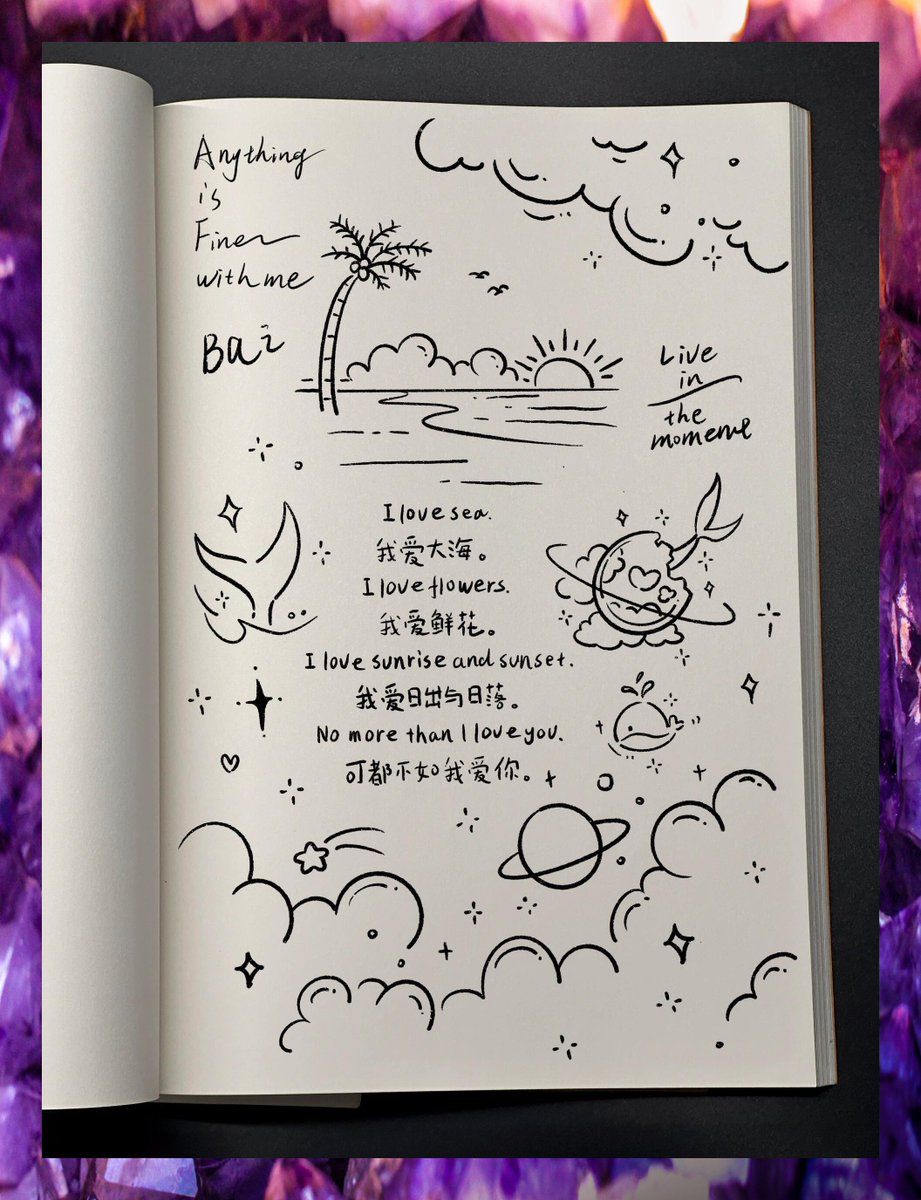 Anything
is
Finer
with me
Bai
Live
in
the
moment
I love sea.
我爱大海。
I love flowers.
我爱鲜花。
I love sunrise and sunset.
我爱日出与日落。
No more than I love you.
可都不如我爱你。